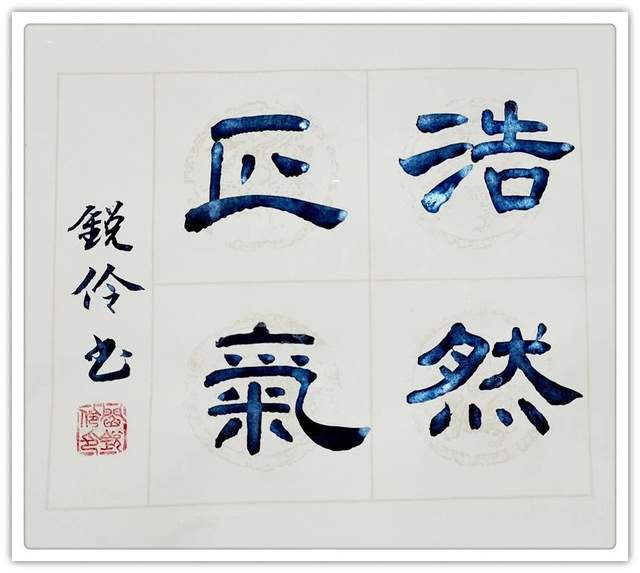 浩然
正氣
銳伶书